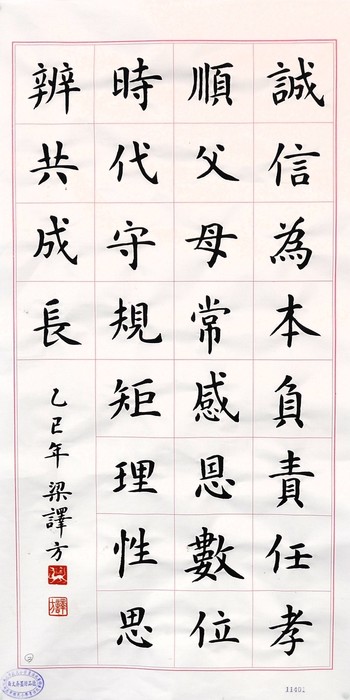 誠信為本負責任孝
順父母常感恩數位
時代守規矩理性思
辨共成長
乙巳年 梁譯方
1140